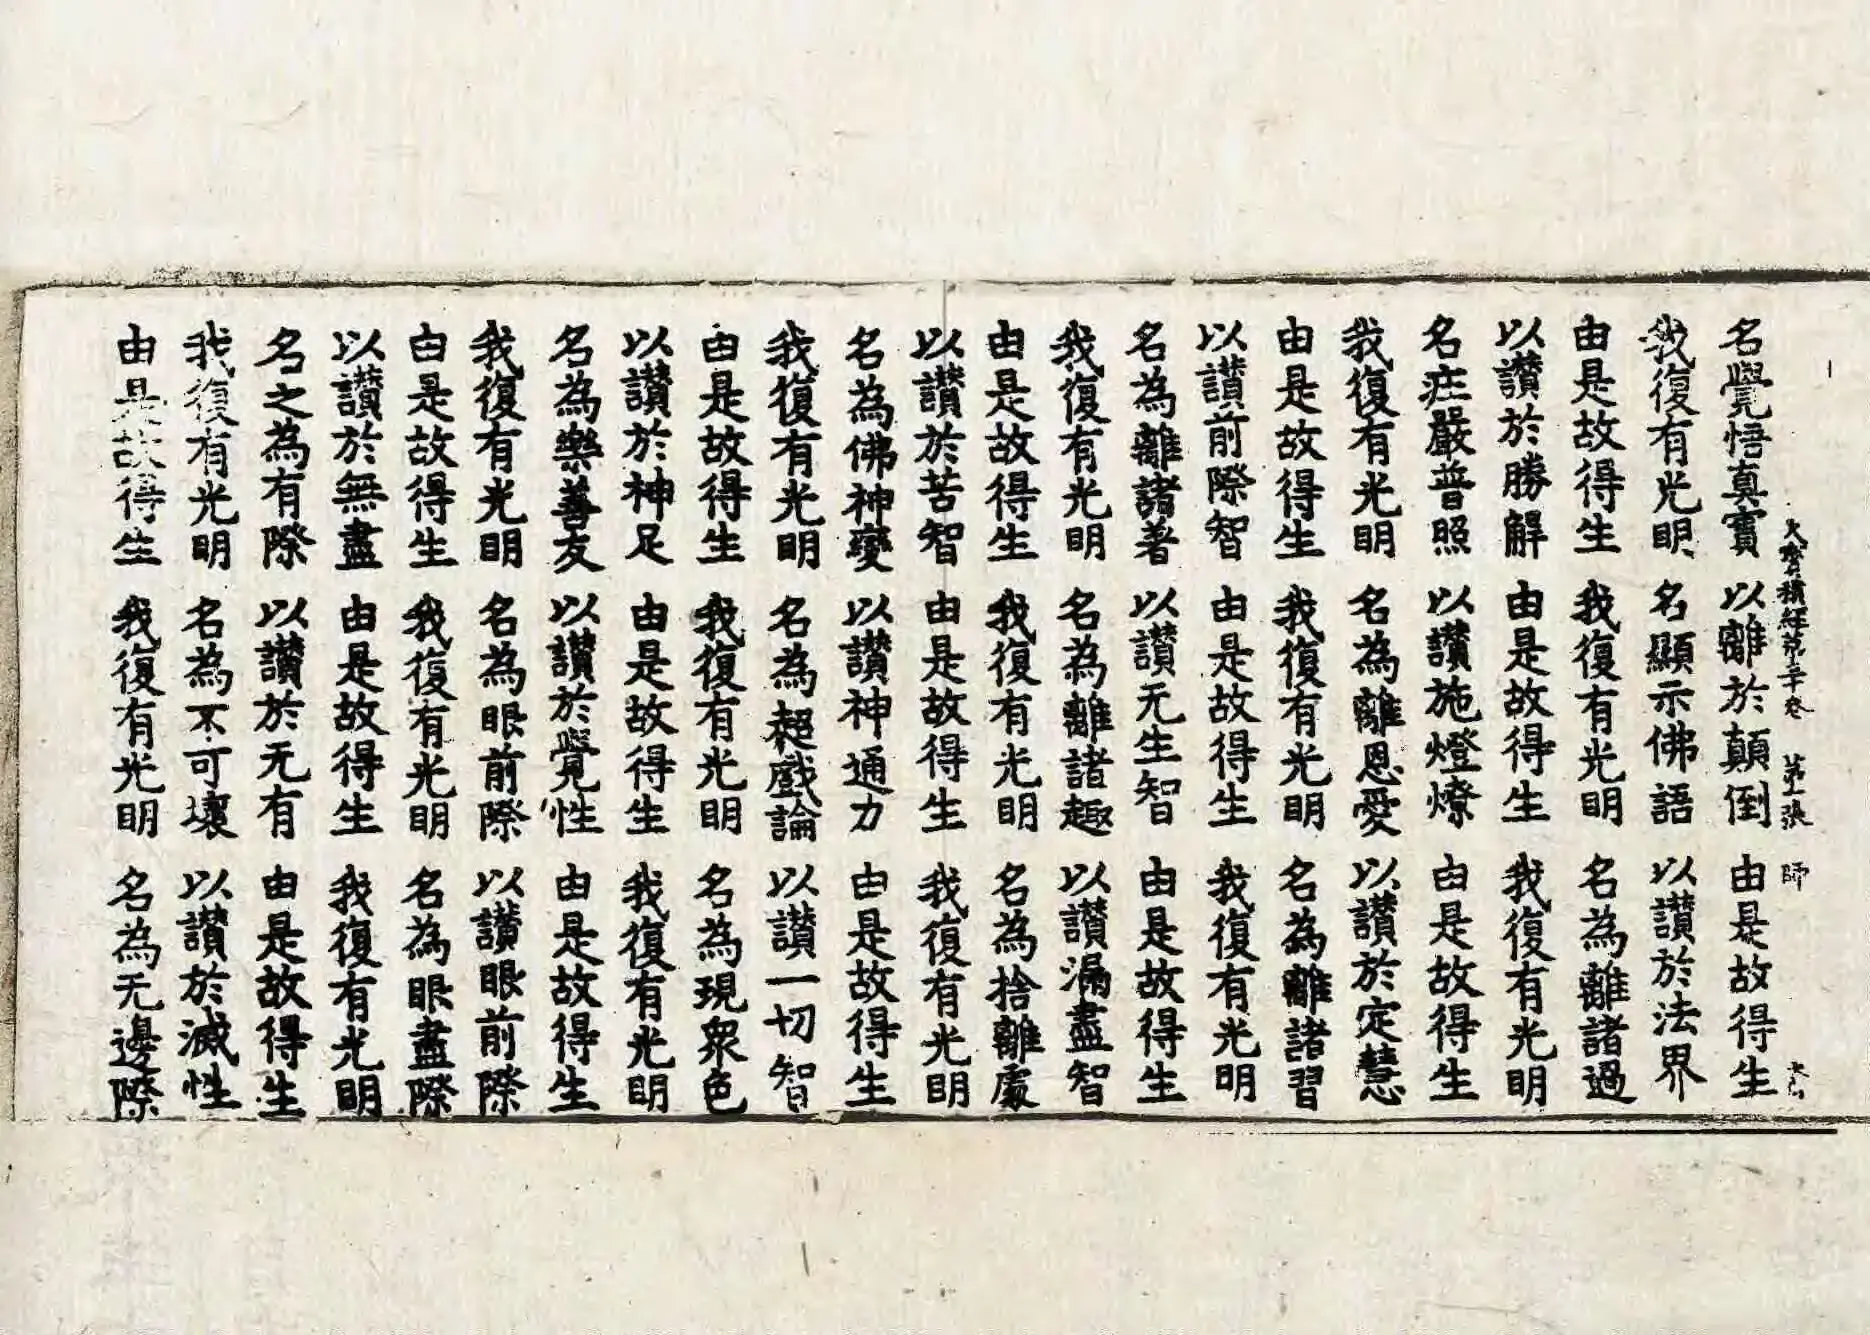 大寶積經第三十卷 張 師
名覺悟真實 以離於顛倒 由是故得生
我復有光明 名顯示佛語 以讚於法界
由是故得生 我復有光明 名為離諸過
以讚於勝解 由是故得生 我復有光明
名庄嚴普照 以讚施燈燎 由是故得生
我復有光明 名為離恩愛 以讚於定慧
由是故得生 我復有光明 名為離諸習
以讚前際智 由是故得生 我復有光明
名為離諸著 以讚无生智 由是故得生
我復有光明 名為離諸趣 以讚漏盡智
由是故得生 我復有光明 名為捨離處
以讚於苦智 由是故得生 我復有光明
名為佛神變 以讚神通力 由是故得生
我復有光明 名為超戲論 以讚一切智
由是故得生 我復有光明 名為現衆色
以讚於神足 由是故得生 我復有光明
名為樂善友 以讚於覺性 由是故得生
我復有光明 名為眼前際 以讚眼前際
由是故得生 我復有光明 名為眼盡際
以讚於無盡 由是故得生 我復有光明
名之為有際 以讚於无有 由是故得生
我復有光明 名為不可壞 以讚於滅性
由是故得生 我復有光明 名為无邊際